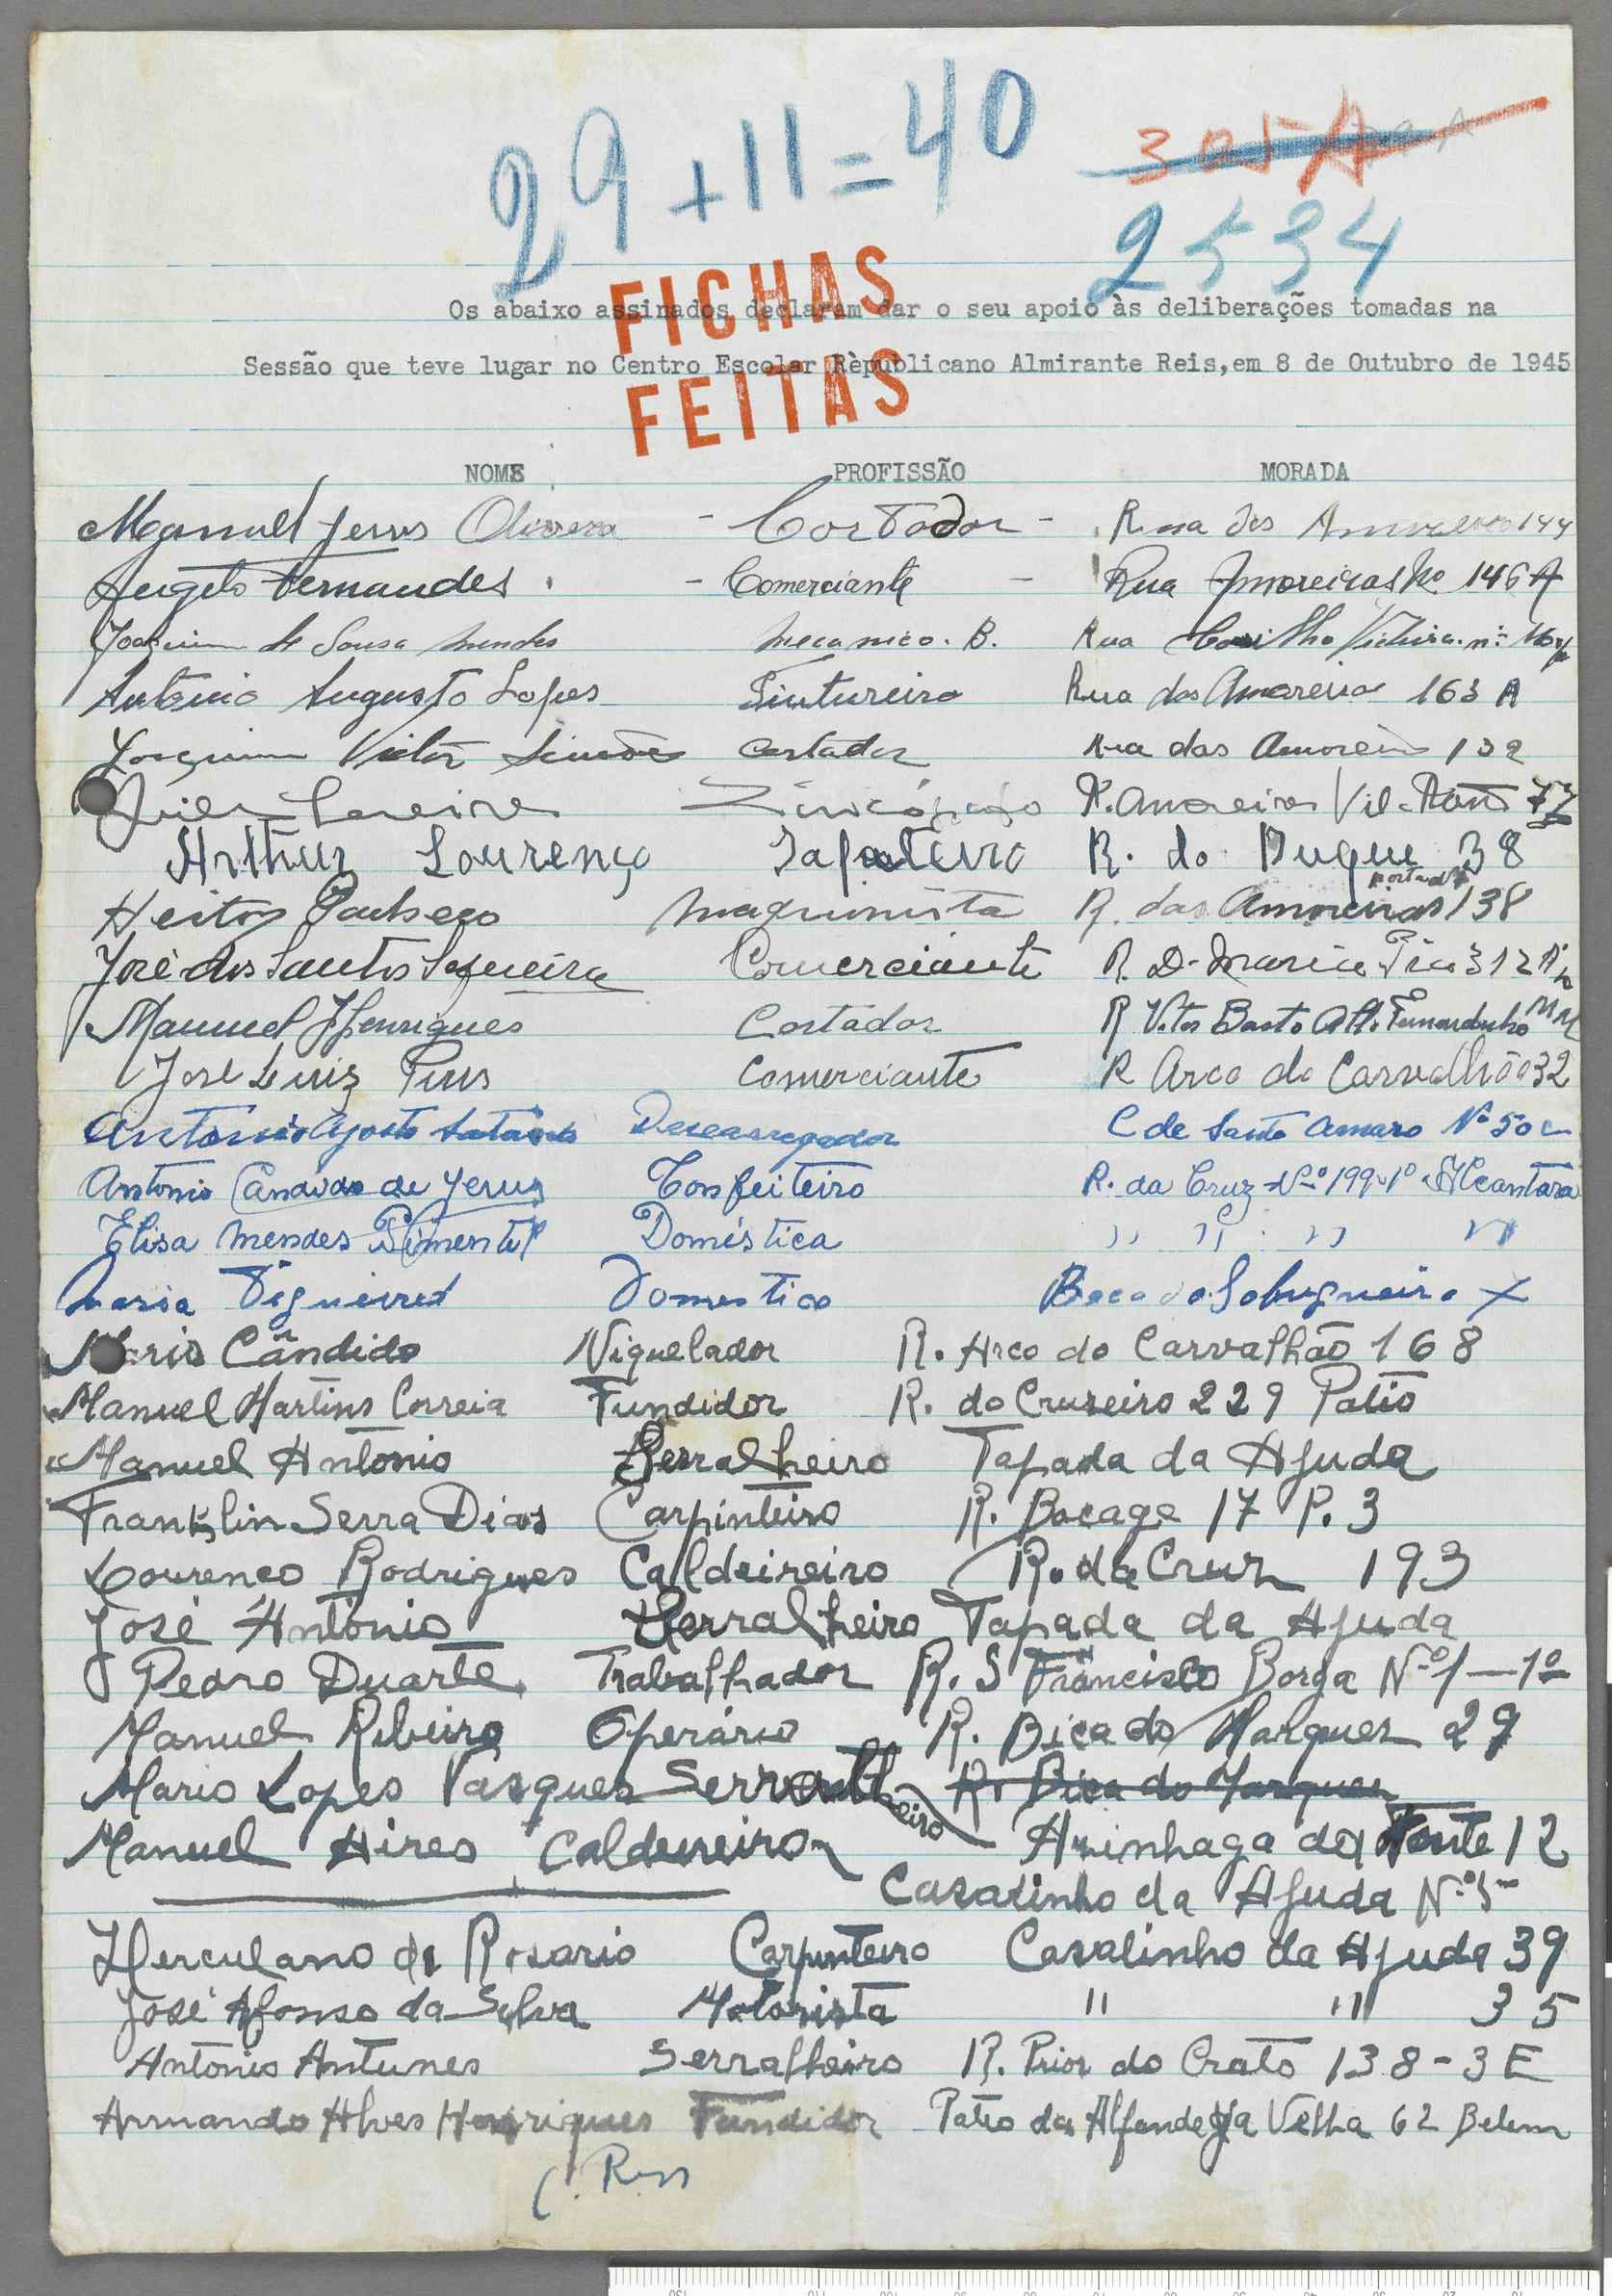 29 + 11 = 40
305 A
2534
FICHAS
FEITAS
Os abaixo assinados declaram dar o seu apoio às deliberações tomadas na
Sessão que teve lugar no Centro Escolar Rèpublicano Almirante Reis,em 8 de Outubro de 1945
NOME PROFISSÃO MORADA
Manuel Jesus Oliveira - Cortador - Rua das 144
Angelo Fernandes - Comerciante - Rua Amoreiras No 146 A
Joaquim de Sousa Mendes Mecanico. B. Rua
António Augusto Lopes Tintureiro Rua das Amoreiras 163 A
Joaquim Victor Simões Cortador Rua das Amoreiras 132
Pereira R. Amoreiras 77
Arthur Lourenço Sapateiro R. do Duque 38
Heitor Pacheco Maquinista R. das Amoreiras 138 porta
José dos Santos Sequeira Comerciante R. D. Maria Pia 312
Manuel Henriques Cortador R Vitor Basto
José Luiz Pires Comerciante R Arco do Carvalhão 32
António Descarregador C de Santo Amaro Nº 50
Antonio Candido de Jesus Confeiteiro R. da Cruz Nº 199-1º Alcantara
Elisa Mendes Pimentel Doméstica ,, ,, ,, ,,
Maria Figueired Domestica Beco do Sabugueiro X
Mario Cândido Niquelador R. Arco do Carvalhão 168
Manuel Martins Correia Fundidor R. do Cruzeiro 229 Patio
Manuel Antonio Serralheiro Tapada da Ajuda
Franklin Serra Dias Carpinteiro R. Bocage 17 P. 3
Lourenco Rodrigues Caldeireiro R. da Cruz 193
José António Serralheiro Tapada da Ajuda
Pedro Duarte Trabalhador R. S Francisco Borga Nº 1-1º
Manuel Ribeiro Operário R. Bica do Marques 29
Mario Lopes Vasques Serralheiro R. Bica do Marques
Manuel Aires Caldeireiro Azinhaga da Fonte 12
Casalinho da Ajuda Nº 5
Herculano da Rosario Carpinteiro Casalinho da Ajuda 39
José Afonso da Silva Motorista " " 35
Antonio Antunes Serralheiro R. Prior do Crato 138-3E
Armando Alves Henriques Fundidor Patio da Alfandega Velha 62 Belem